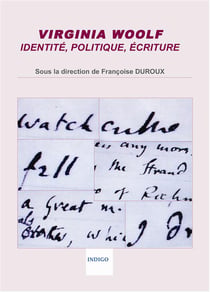 VIRGINIA WOOLF
IDENTITÉ, POLITIQUE, ÉCRITURE
Sous la direction de Françoise DUROUX
watch
any more,
fall
the Strand
of Richm
a great m
INDIGO